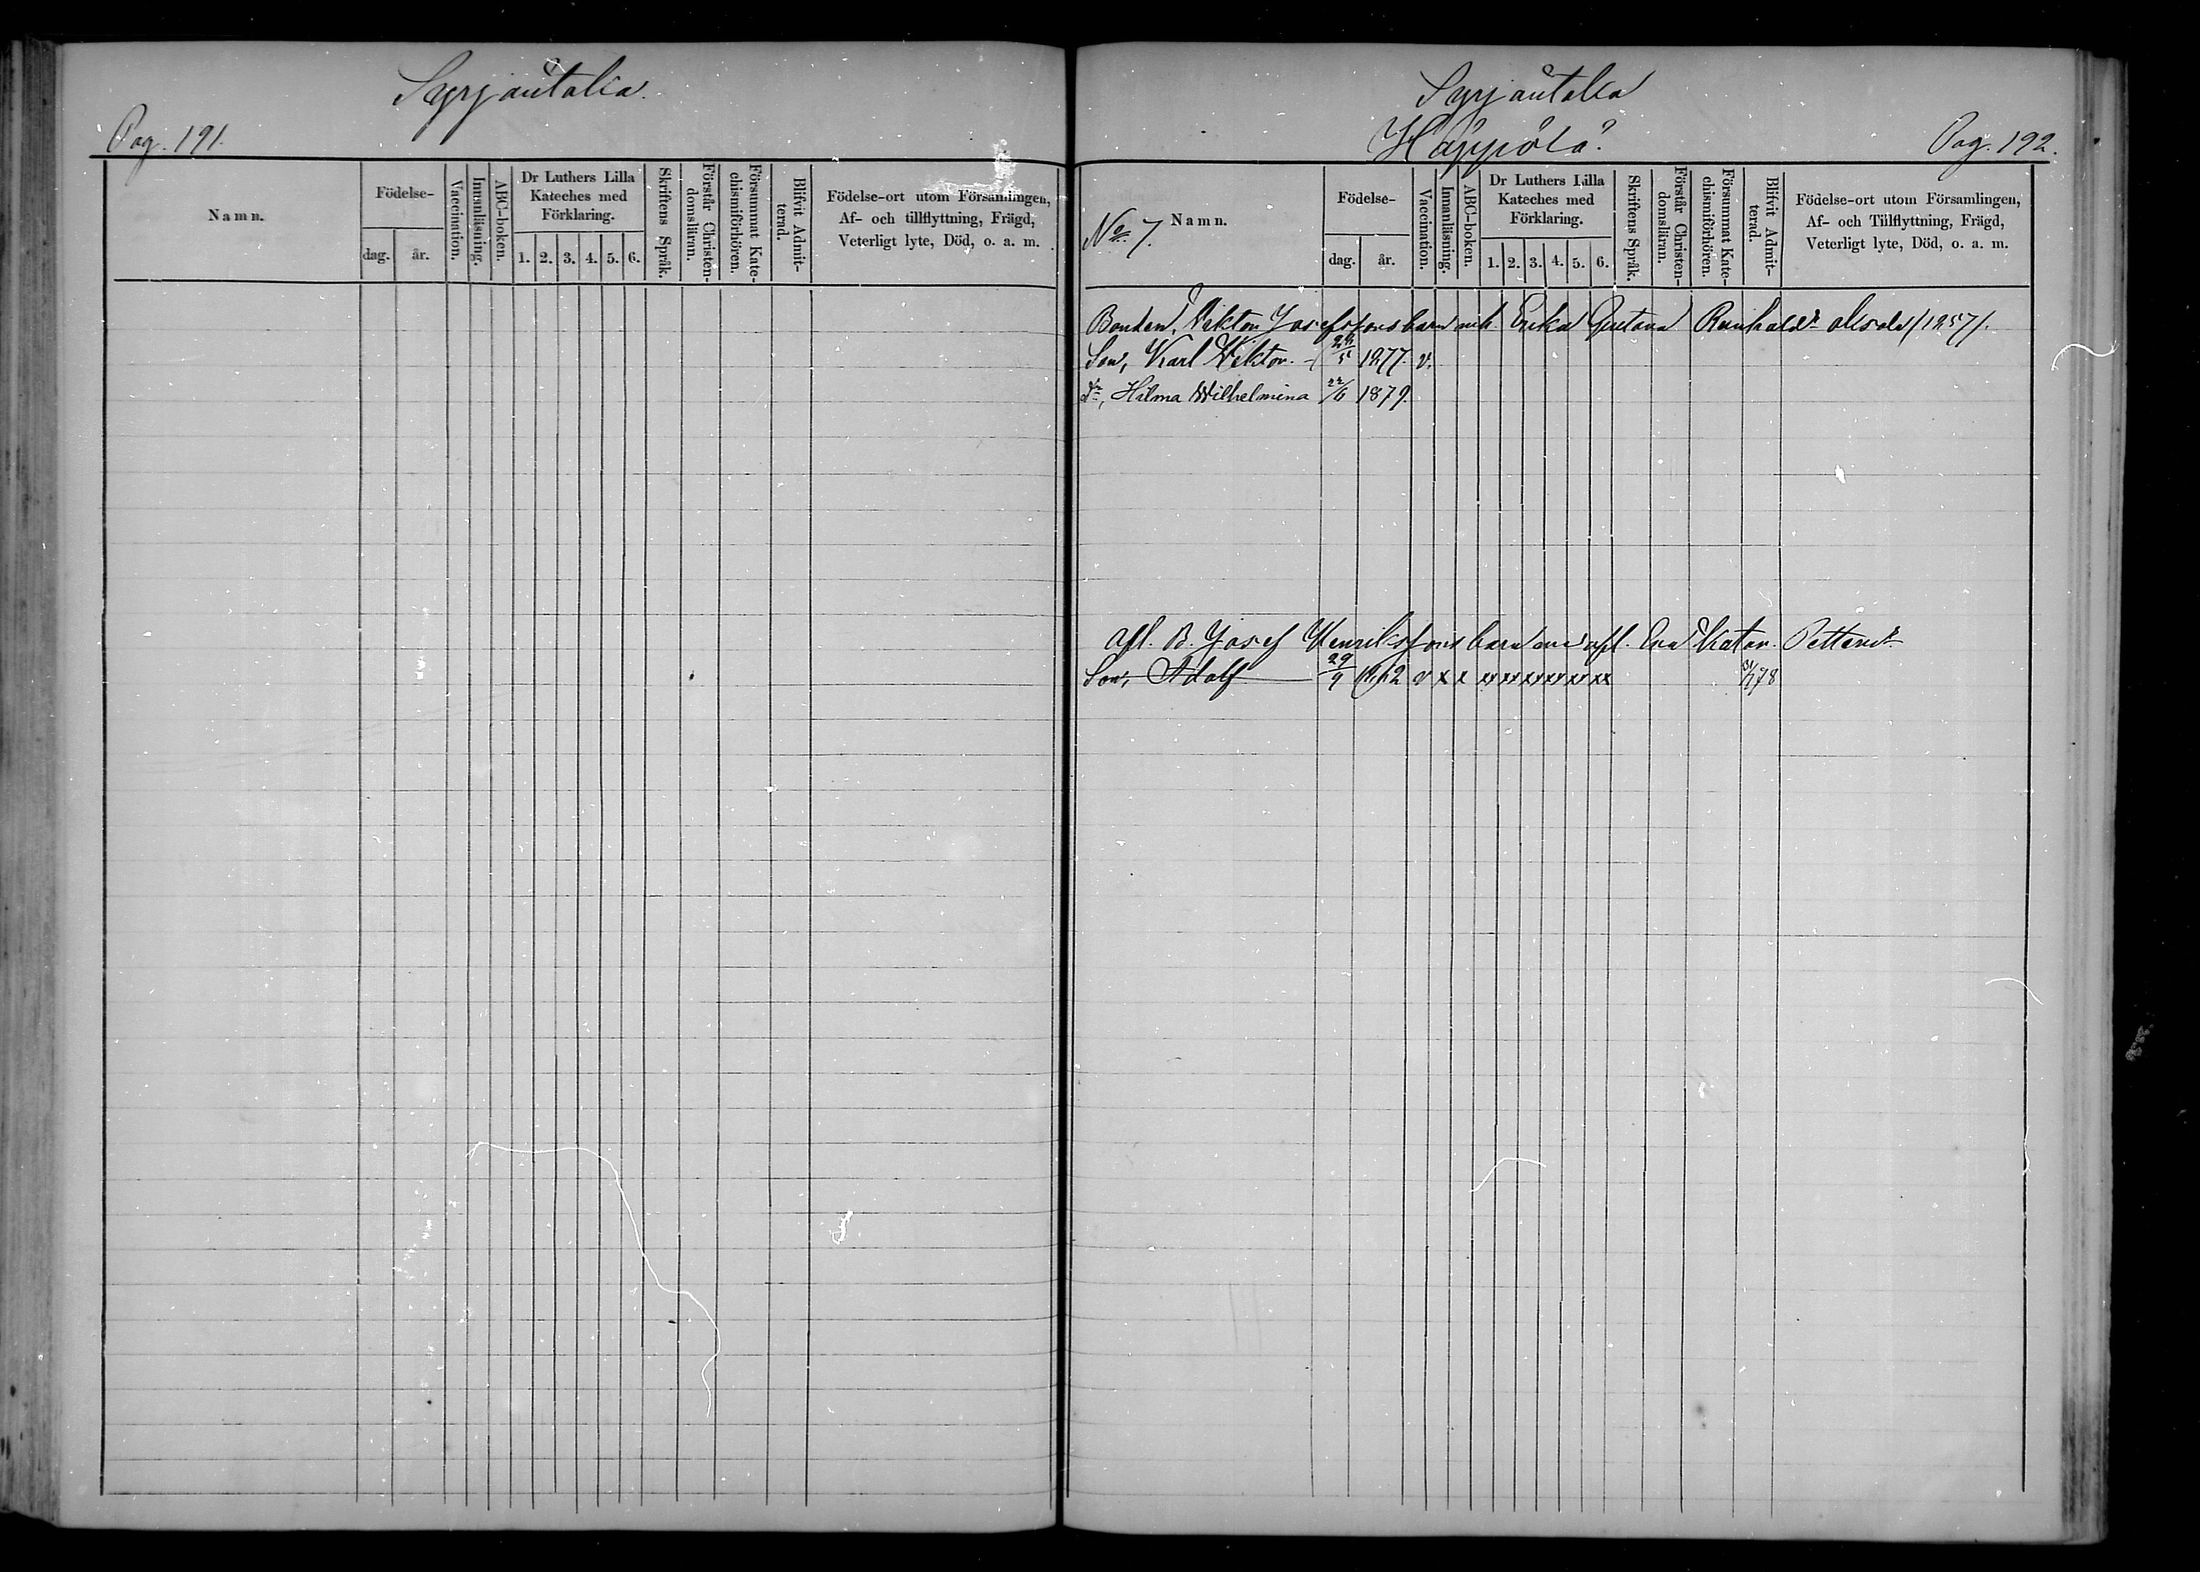 Syrjäntaka.
Pag. 191.
Namn.
Födelse-
dag.
år.
Vaccination.
Innanläsning.
ABC-boken.
Dr Luthers Lilla
Kateches med
Förklaring.
1. 2. 3. 4. 5. 6.
Skriftens Språk.
Förstår Christen-
domsläran.
Försummat Kate-
chismiförhören.
Blifvit Admit-
terad.
Födelse-ort utom Församlingen,
Af- och tillflyttning, Frägd,
Veterligt lyte, Död, o. a. m.
Syrjäntaka
Häppölä.
Pag. 192.
No 7.
Namn.
Födelse-
dag.
år.
Vaccination.
Innanläsning.
ABC-boken.
Dr Luthers Lilla
Kateches med
Förklaring.
1. 2. 3. 4. 5. 6.
Skriftens Språk.
Förstår Christen-
domsläran.
Försummat Kate-
chismiförhören.
Blifvit Admit-
terad.
Födelse-ort utom Församlingen,
Af- och Tillflyttning, Frägd,
Veterligt lyte, Död, o. a. m.
Bonden, Viktor Josefssons barn m. h. Erika Gustava Reinholdsdr
Son, Karl Viktor 1877. v.
Dr, Hilma Wilhelmina 22/6 1879.
Afl. B. Josef Henrikssons barn med afl. Eva Katar. Pettersdr
Son, Adolf 29/9 1862 v x x xx xx xx xx xx xx /78